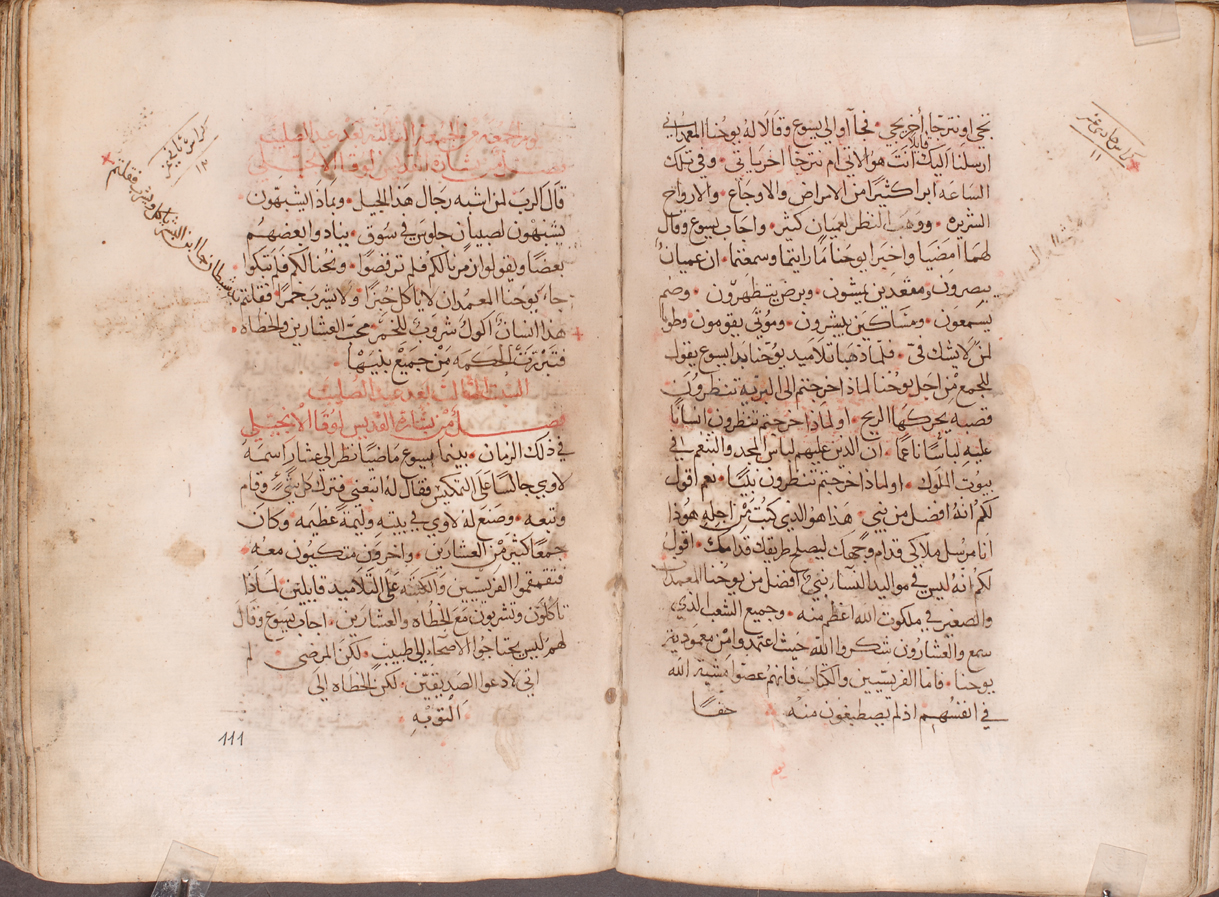 نجي او نترجا أخر يجي • فجآ أو الى يسوع وقالا له يوحنا المعمداني
ارسلنا اليك قايلا أنت هو الاتي ام نترجا اخر ياتي • وفي تلك
الساعه ابرا كثيرًا من الامراض والاوجاع • والارواح
الشريره • ووهب النظر لعميان كثير • واجاب يسوع وقال
لهما امضيا واخبرا يوحنا ما رايتما وسمعتما • ان عميانٌ
يبصرون ومقعدين يمشون • وبرص يتطهرون • وصم
يسمعون • ومساكين يبشرون • وموتى يقومون وطوبا
لمن لا يشك في • فلما ذهبا تلاميد يوحنا بدا يسوع يقول
للجمع من اجل يوحنا لماذا خرجتم الى البرية تنظرون
قصبه يحركها الريح • او لماذا خرجتم تنظرون انسانًا
عليه لباسًا ناعمًا • ان الدين عليهم لباس المجد والتنعم في
بيوت الملوك • او لماذا خرجتم تنظرون نبيًا • نعم اقول
لكم انه افضل من نبي • هذا هو الدي كتب من اجله هودا
انا مرسل ملاكي قدام وجهك ليصلح طريقك قدامك • اقول
لكم انه ليس في مواليد النسا نبي افضل من يوحنا المعمدان
والصغير في ملكوت الله اعظم منه • وجميع الشعب الذي
سمع والعشارون شكروا الله حيث اعتمدوا من معمودية
يوحنا • فاما الفريسيين والكتاب فانهم عصوا مشية الله
في انفسهم اذ لم يصطبغون منه حقًا
كراس حادي عشر
١١
كراس ثاني عشر
١٢
يوم الجمعه من الجمعه الثالثه بعد عيد الصليب
فصل من بشارة القديس لوقا الانجيلي
قال الرب لمن اشبه رجال هذا الجيل • وبماذا يشبهون
يشبهون لصبيان جلوس في سوق • ينادوا بعضهم
بعضًا ويقولوا زمرنا لكم فلم ترقصوا • ونحنا لكم فلم تبكوا
جا يوحنا المعمدان لا ياكل خبزًا • ولا يشرب خمرًا • فقلتم
به شيطان جا ابن البشر ياكل ويشرب فقلتم
هذا انسان اكول شروب للخمر • محب العشارين والخطاه
فتبررت الحكمه من جميع بنيها •
السبت الثالث بعد عيد الصليب
فصل من بشارة القديس لوقا الانجيلي
في ذلك الزمان • بينما يسوع ماضيًا نظر الى عشار اسمه
لاوي جالسًا على التمكيس فقال له اتبعني فترك كل شي وقام
وتبعه • وصنع له لاوي في بيته وليمة عظيمه • وكان
جمعًا كثير من العشارين • واخرون متكيون معه •
فتقمقموا الفريسيين والكتبه على التلاميد قايلين لماذا
تاكلون وتشربون مع الخطاه والعشارين • اجاب يسوع وقال
لهم ليس يحتاجوا الاصحاء الى طبيب • لكن المرضى لم
اتي لادعوا الصديقين • لكن الخطاه الى
التوبه •
111